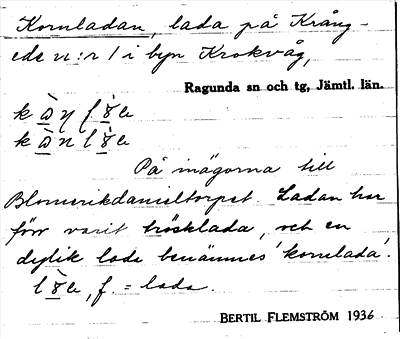 Kornladan, lada på Krång-
ede n:r 1 i byn Krokvåg,
Ragunda sn och tg, Jämtl. län.
På inägorna till
Blomerikdanieltorpet. Ladan har
förr varit trösklada, och en
dylik lada benämnes 'kornlada'.
f. = lada.
BERTIL FLEMSTRÖM 1936